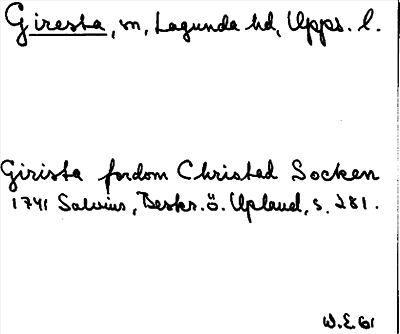 Giresta, sn, Lagunda hd, Upps. l.
Girista fordom Christed Socken
1741 Salvius, Beskr. ö. Upland, s. 281.
W.E. 61